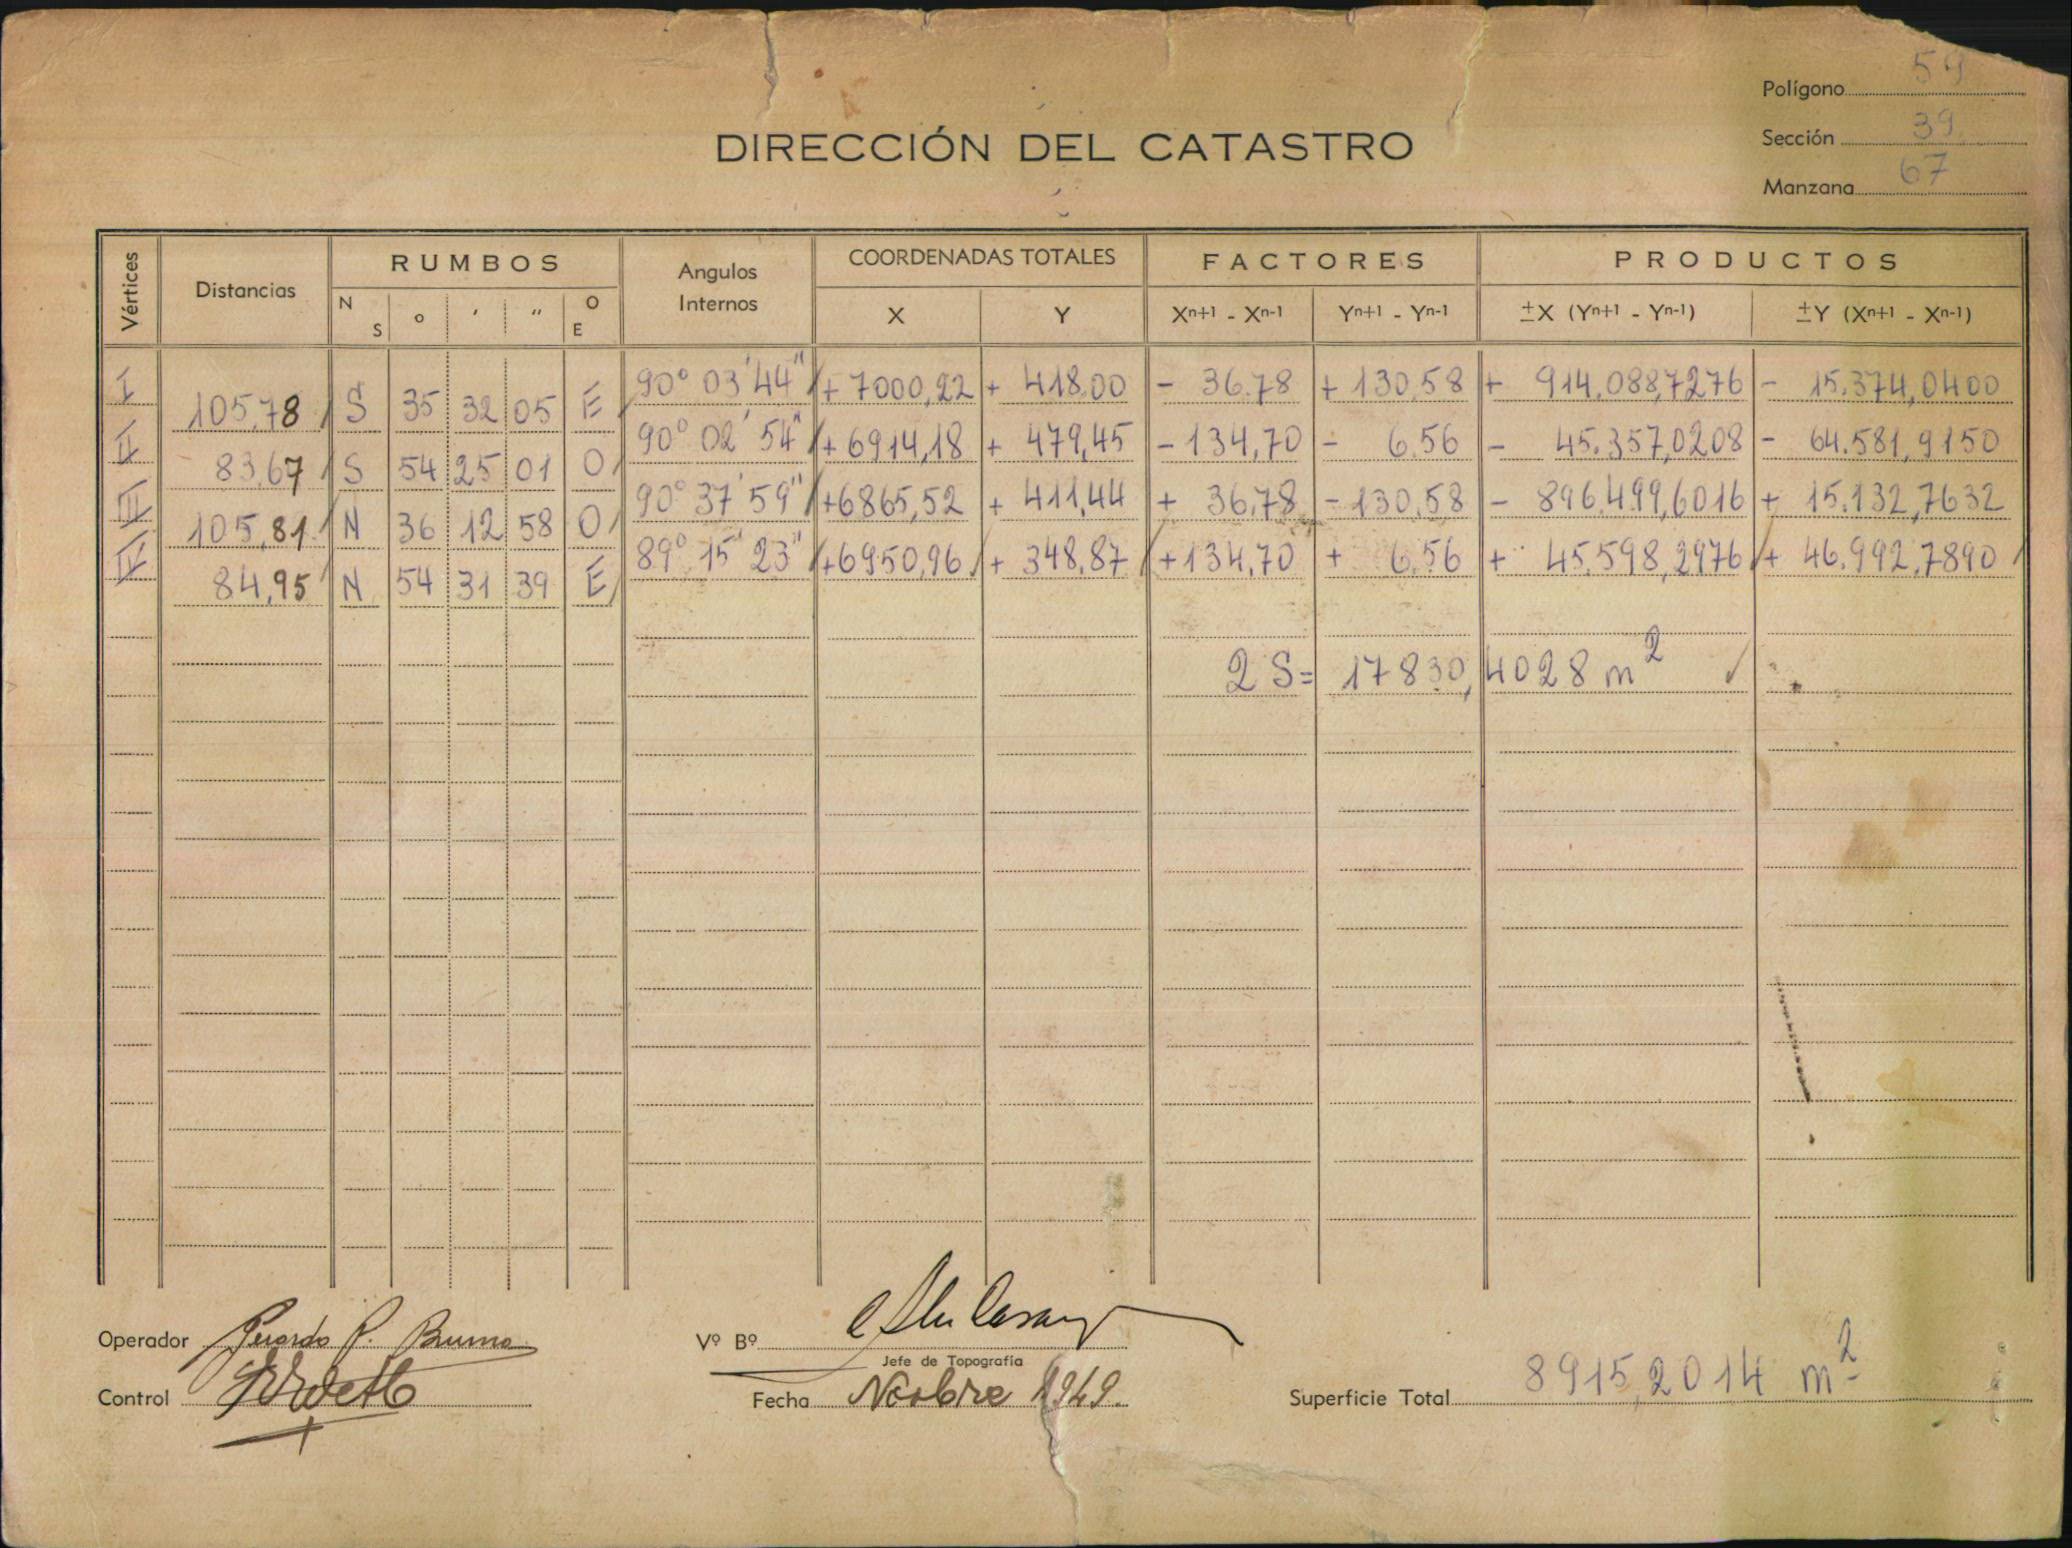 Polígono 54
Sección 39
Manzana 67
DIRECCIÓN DEL CATASTRO
Vértices Distancias RUMBOS Angulos Internos COORDENADAS TOTALES FACTORES PRODUCTOS
N S o ' " O E X Y Xn+1 - Xn-1 Yn+1 - Yn-1 ±X (Yn+1 - Yn-1) ±Y (Xn+1 - Xn-1)
I 90° 03' 44" + 7000,22 + 418.00 - 36.78 + 130,58 + 914.088,7276 - 15.374,0400
105,78 S 35 32 05 E
II 90° 02' 54" + 6914,18 + 479,45 - 134,70 - 6.56 - 45.357,0208 - 64.581,9150
83,67 S 54 25 01 O
III 90° 37' 59" + 6865,52 + 411,44 + 36.78 - 130,58 - 896.499,6016 + 15.132,7632
105,81 N 36 12 58 O
IV 89° 15' 23" + 6950,96 + 348,87 + 134,70 + 6.56 + 45.598,2976 + 46.992,7890
84,95 N 54 31 39 E
2 S= 17830,4028 m2
Operador Gerardo P. Bruno
Vº Bº
Jefe de Topografía
Control
Fecha Novbre 1949.
Superficie Total 8915,2014 m2